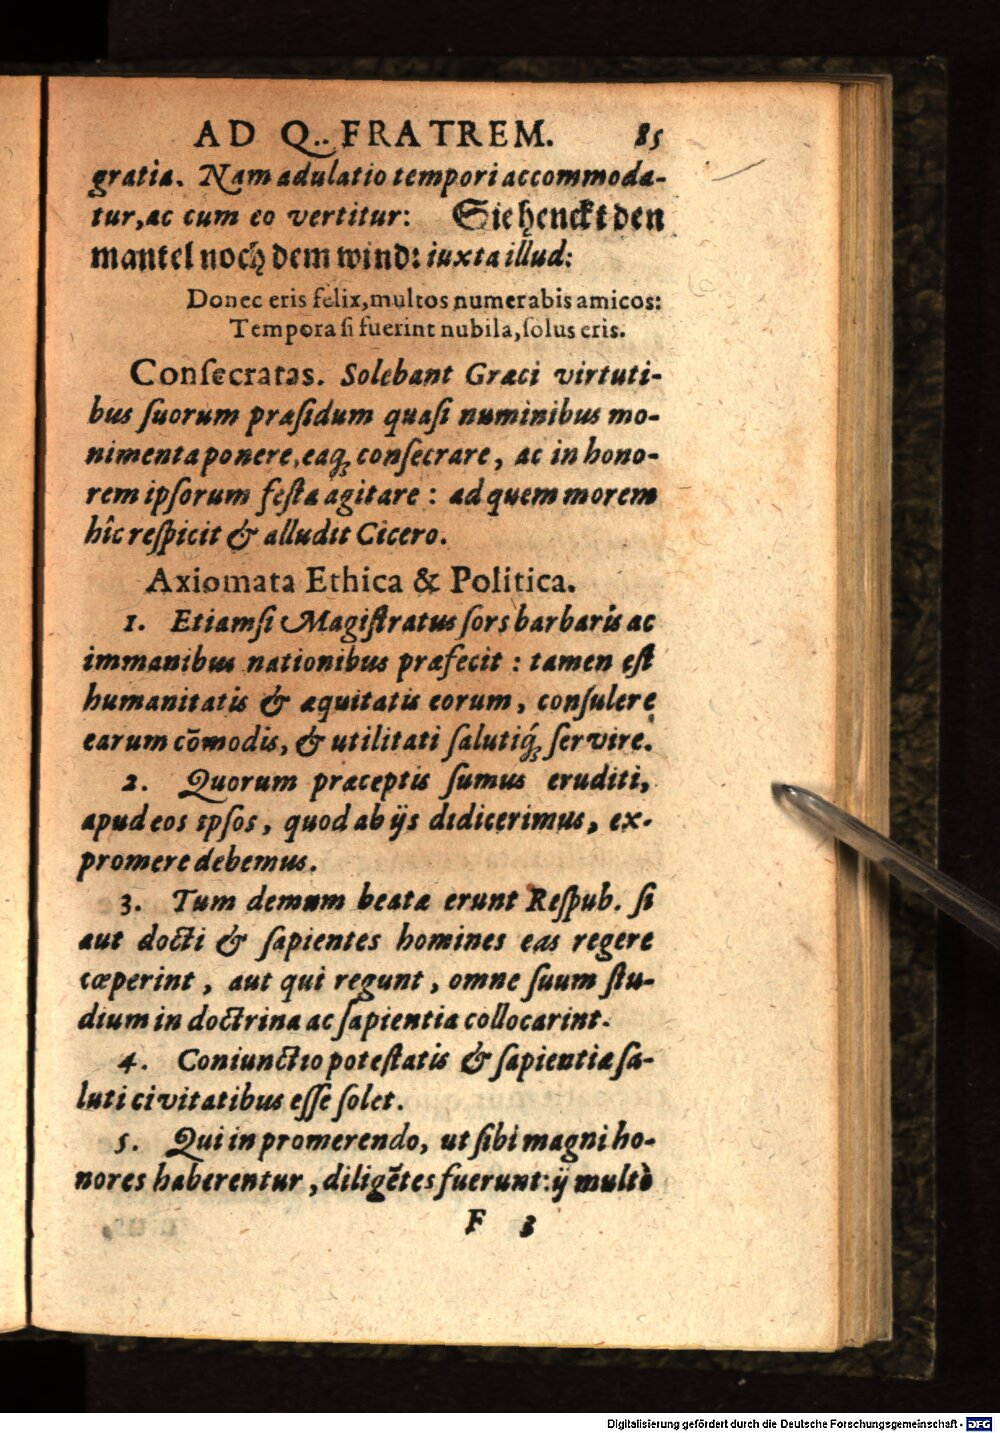 AD Q. FRATREM. 85
gratia. Nam adulatio tempori accommoda-
tur, ac cum eo vertitur: Sie henckt den
mantel noch dem wind: iuxta illud:
Donec eris felix, multos numerabis amicos:
Tempora si fuerint nubila, solus eris.
Consecratas. Solebant Græci virtuti-
bus suorum præsidum quasi numinibus mo-
nimenta ponere, eaq́; consecrare, ac in hono-
rem ipsorum festa agitare: ad quem morem
hîc respicit & alludit Cicero.
Axiomata Ethica & Politica.
1. Etiamsi Magistratus sors barbaris ac
immanibus nationibus præfecit: tamen est
humanitatis & æquitatis eorum, consulere
earum cōmodis, & utilitati salutiq́; servire.
2. Quorum præceptis sumus eruditi,
apud eos ipsos, quod ab ijs didicerimus, ex-
promere debemus.
3. Tum demum beatæ erunt Respub. si
aut docti & sapientes homines eas regere
cœperint, aut qui regunt, omne suum stu-
dium in doctrina ac sapientia collocarint.
4. Coniunctio potestatis & sapientiæ sa-
luti civitatibus esse solet.
5. Qui in promerendo, ut sibi magni ho-
nores haberentur, diligētes fuerunt: ij multò
F 3
Digitalisierung gefördert durch die Deutsche Forschungsgemeinschaft - DFG